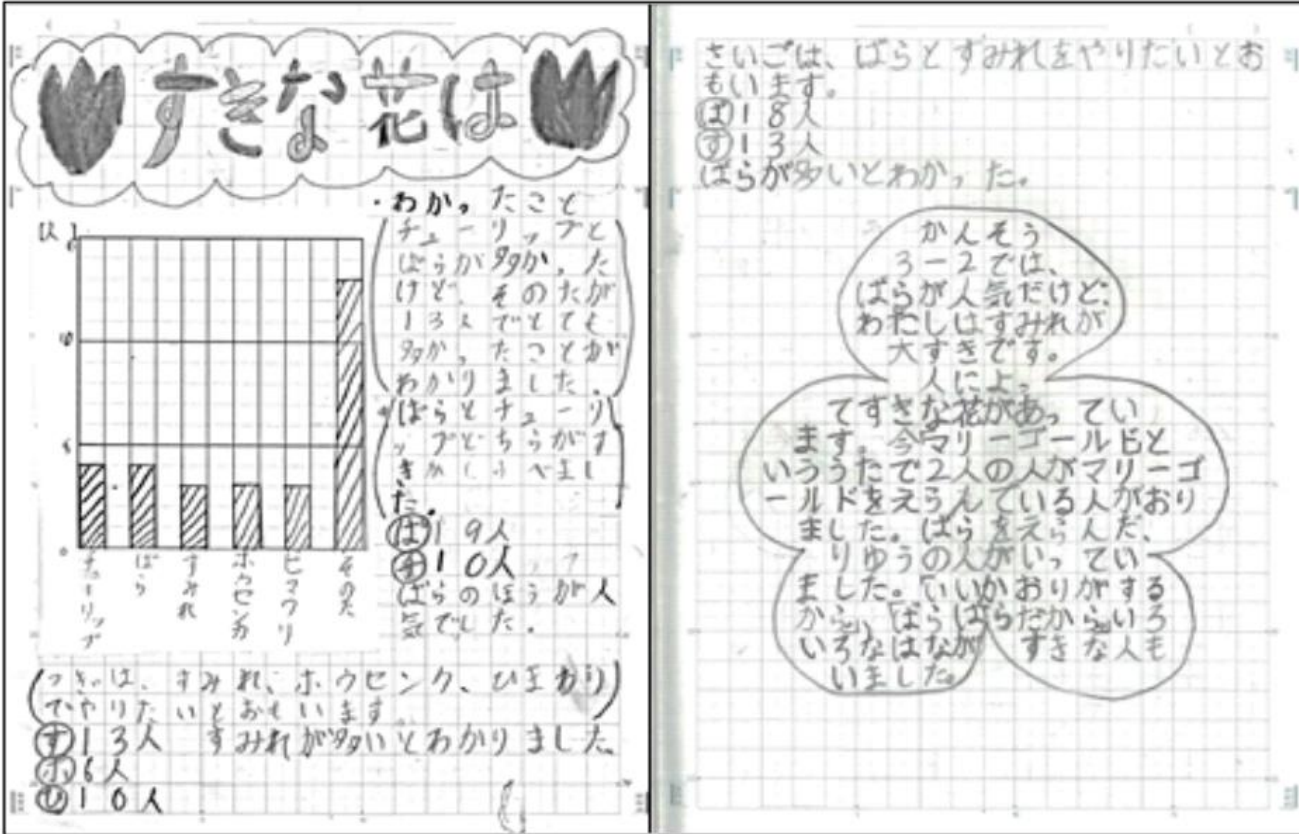 すきな花は
・わかったこと
チューリップと
ばらが多かった
けど、そのたが
13人でとても
多かったことが
わかりました。
ばらとチューリ
ップどちらがす
きかしらべまし
た。
ば19人
チ10人
ばらのほうが人
気でした。
(人)
10
5
0
チューリップ
ばら
すみれ
ホウセンカ
ヒマワリ
そのた
つぎは、すみれ、ホウセンカ、ひまわり
でやりたいとおもいます
す13人 すみれが多いとわかりました
ホ6人
ひ10人
さいごは、ばらとすみれをやりたいとお
もいます。
ば18人
す13人
ばらが多いとわかった。
かんそう
3-2では、
ばらが人気だけど、
わたしはすみれが
大すきです。
人によっ
てすきな花があってい
ます。今マリーゴールドと
いううたで2人の人がマリーゴ
ールドをえらんでいる人がおり
ました。ばらをえらんだ、
りゆうの人がいってい
ました。「いいかおりがする
から」、「ばらはらだから」いろ
いろなはなが すきな人も
いました。